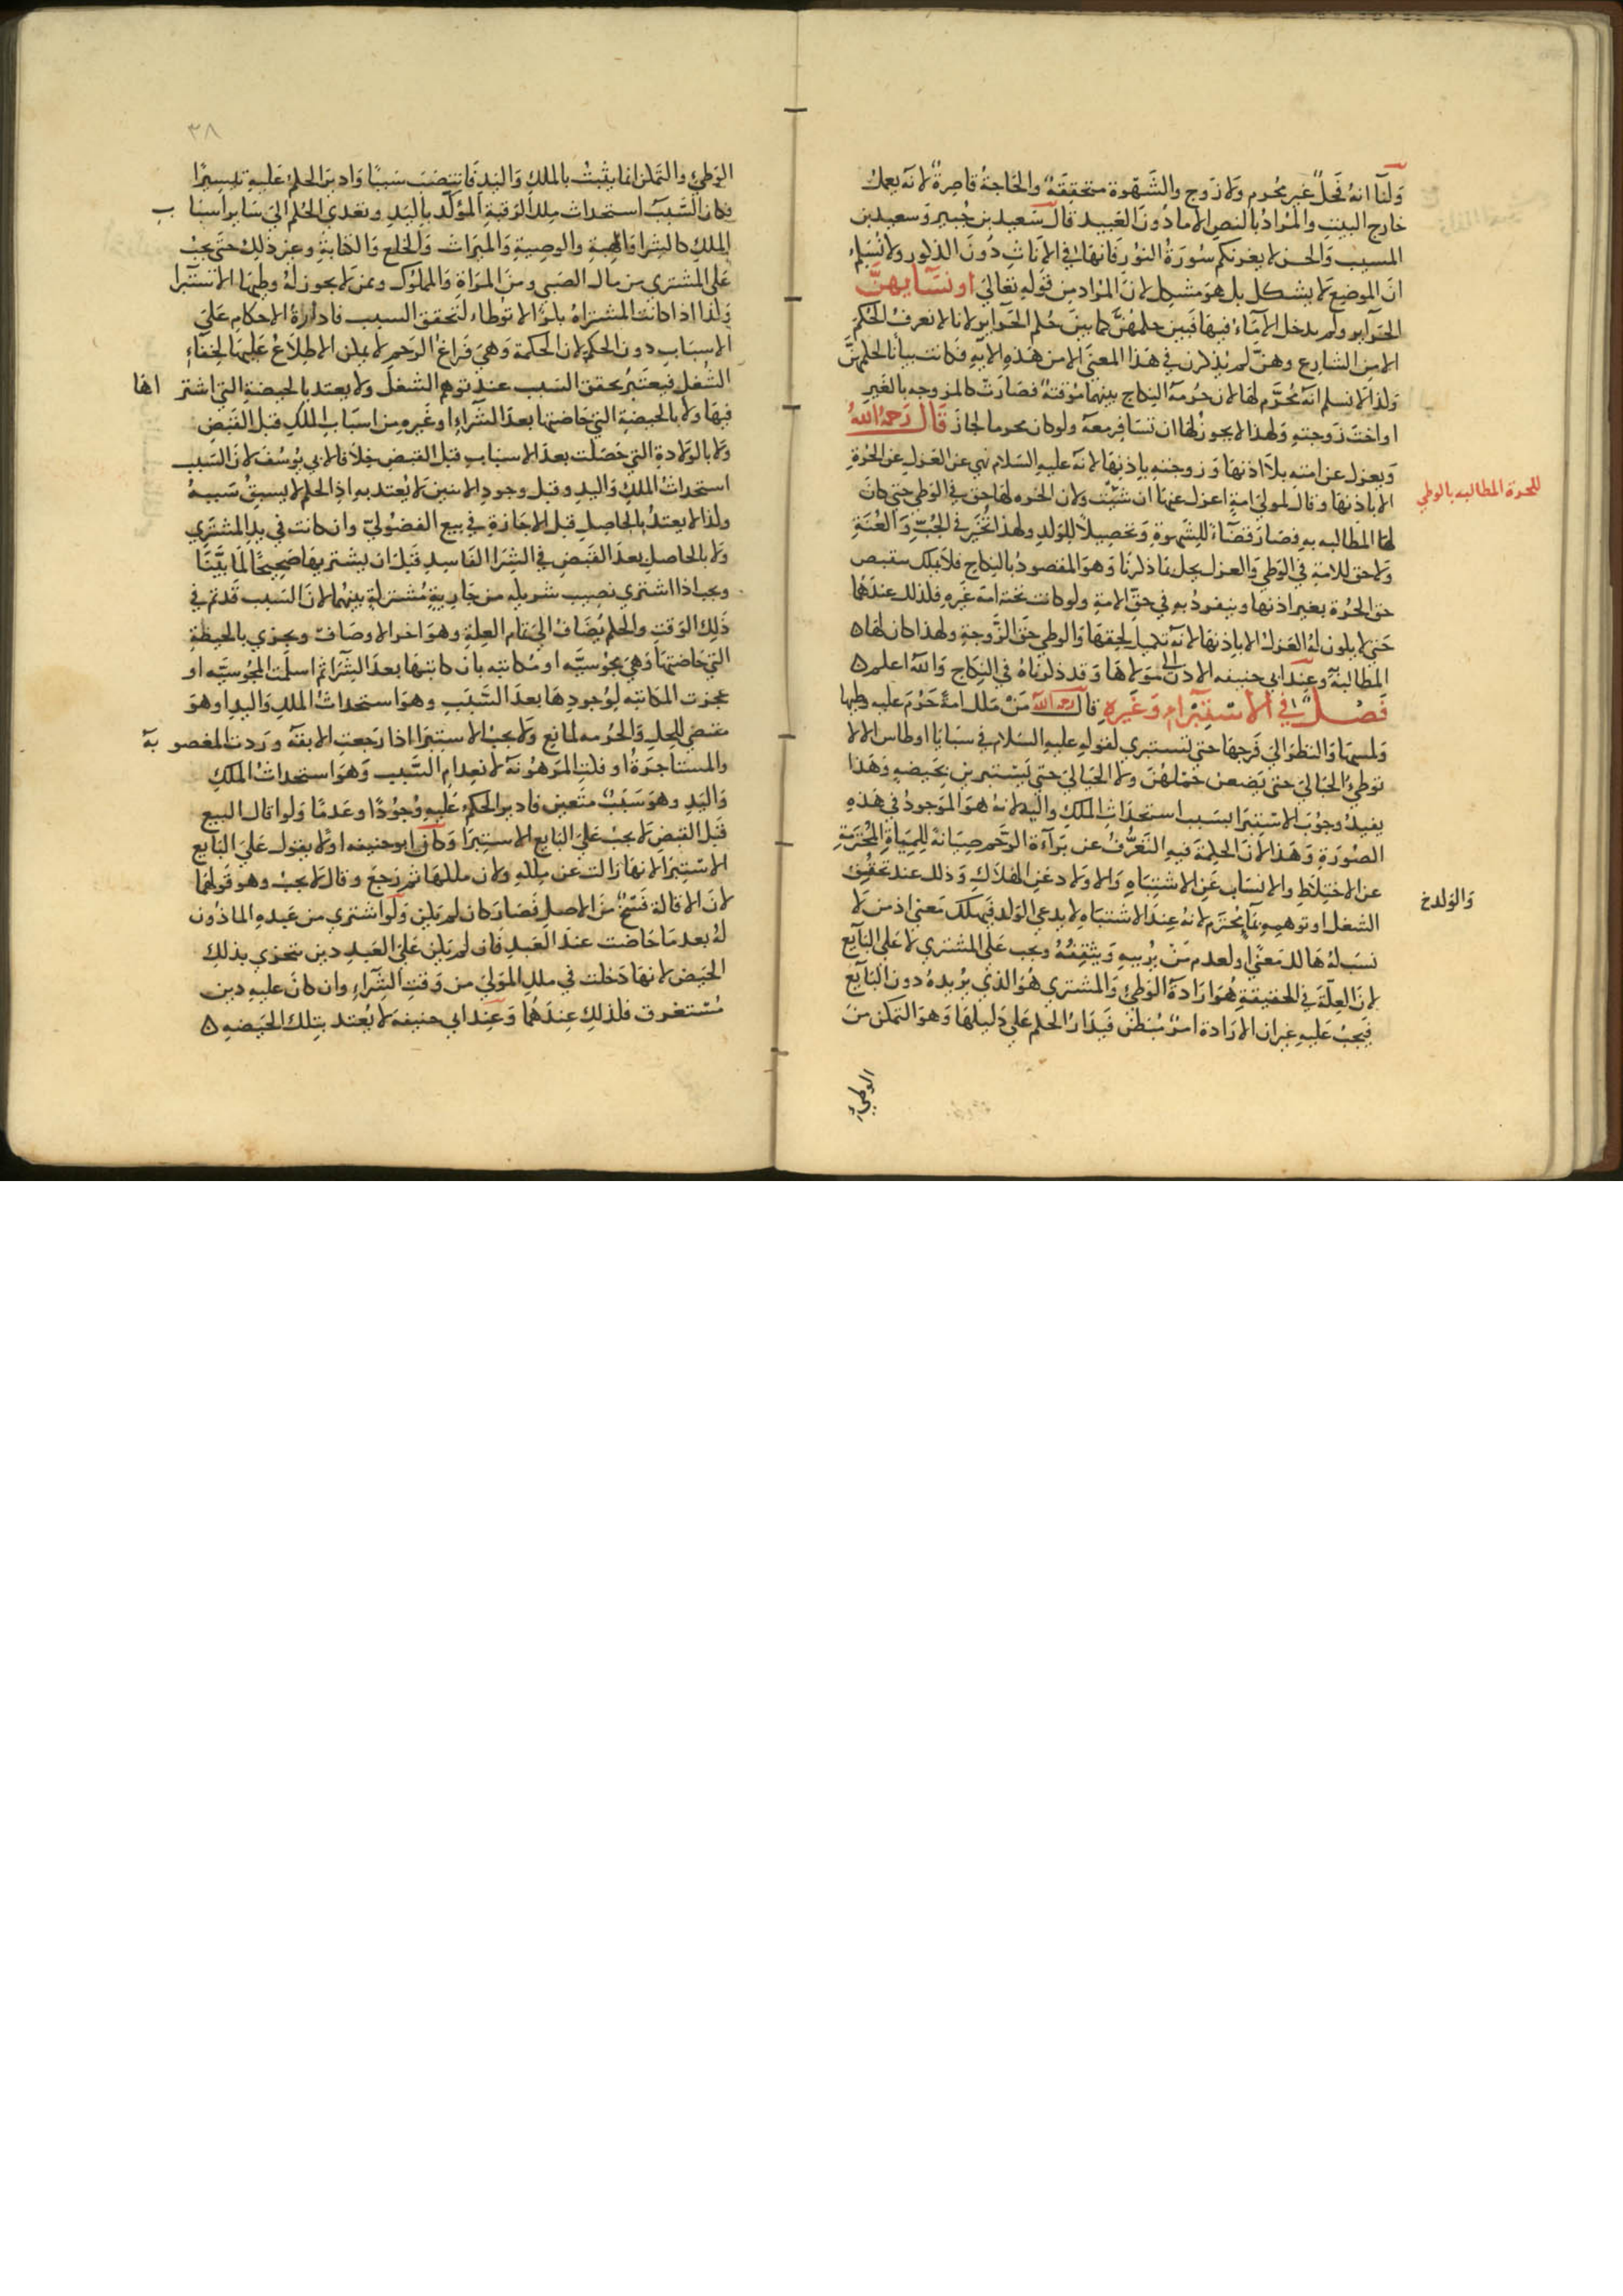 ولنا انه فحل غير محرم ولا زوج والشهوة متحققة والحاجة قاصرة لانه يعمل
خارج البيت والمراد بالنص الاماء دون العبيد قال سعيد بن جبير وسعيد بن
المسيب والحسن لا يغرنكم سورة النور فانها في الاناث دون الذكور ولا نسلم
ان الموضع لا يشكل بل هو مشكل لان المراد من قوله تعالى او نسايهن
الحراير ولم يدخل الاماء فيها فبين حكمهن كما بين حكم الحراير ولانا لا نعرف الحكم
الا من الشارع وهن لم يذكرن في هذا المعنى الا من هذه الايه فكانت بيانا لحكمهن
ولذا لا نسلم انه محرم لها لان حرمة النكاح بينهما موقتة فصارت كالمزوجه بالغير
او اخت زوجته ولهذا لا يجوز لها ان تسافر معه ولو كان محرما لجاز قال رحمه الله
ويعزل عن امته بلا اذنها وزوجته باذنها لانه عليه السلام نهى عن العزل عن الحرة
الا باذنها وقال لمولى امة اعزل عنها ان شئت ولان الحره لها حق في الوطي حتى كان
للحرة المطالبه بالوطي
لها المطالبه به فصار قضاء للشهوة وتحصيلا للولد ولهذا تخير في الجب والعنة
ولا حق للامة في الوطي والعزل يخل بما ذكرنا وهو المقصود بالنكاح فلا يملك تنقيص
حق الحرة بغير اذنها وينفرد به في حق الامة ولو كانت تحته امة غيره فلذلك عندهما
حتى لا يكون له العزل الا باذنها لانه تكميل لحقها والوطي حق الزوجة ولهذا كان لها
المطالبة وعند ابي حنيفه الاذن الى مولاها وقد ذكرناه في النكاح والله اعلم
فصل في الاستبراء وغيره قال رحمه الله من ملك امة حرم عليه وطيها
ولمسها والنظر الى فرجها حتى تستبري لقوله عليه السلام في سبايا اوطاس الا لا
توطئ الحبالى حتى يضعن حملهن ولا الحيالى حتى يستبرين بحيضه وهذا
يفيد وجوب الاستبرا بسبب استحداث الملك واليد لانه هو الموجود في هذه
الصورة وهذا لان الحكمة فيه التعرف عن براءة الرحم صيانة للمياه المحترمة
عن الاختلاط والانساب عن الاشتباه والاولاد عن الهلاك وذلك عند تحقيق
والولد خ
الشغل او توهمه بماء محترم لانه عند الاشتباه لا يدعي الولد فيهلك معنى اذ من لا
نسب له هالك معنى او لعدم من يربيه وينفقه ويجب على المشتري لا على البايع
لان العلة في الحقيقة هو ارادة الوطئ والمشتري هو الذي يريده دون البايع
فيجب عليه غير ان الارادة امر مبطن فيدار الحكم على دليلها وهو التمكن من
الوطئ
٣٨
الوطئ والتمكن انما يثبت بالملك واليد فانتصب سببا وادير الحكم عليه تيسيرا
فكان السبب استحداث ملك الرقبة المؤكد باليد وتعدى الحكم الى ساير اسباب
الملك كالشرا والهبة والوصية والميراث والخلع والكتابة وغير ذلك حتى يجب
على المشتري من مال الصبي ومن المراة والمملوك وممن لا يجوز له وطيها الاستبرا
وكذا اذا كانت المشتراة بكرا لا توطاء لتحقق السبب فادارة الاحكام على
الاسباب دون الحكم لان الحكمة وهي فراغ الرحم لا يمكن الاطلاع عليها لخفاء
الشغل فيعتبر تحقق السبب عند توهم الشغل ولا يعتد بالحيضة التي اشتراها
فيها ولا بالحيضة التي حاضتها بعد الشراء او غيره من اسباب الملك قبل القبض
ولا بالولادة التي حصلت بعد الاسباب قبل القبض خلافا لابي يوسف لان السبب
استحداث الملك واليد وقبل وجود الاثنين لا يعتد به اذ الحكم لا يسبق سببه
ولذا لا يعتد بالحاصل قبل الاجازة في بيع الفضولي وان كانت في يد المشتري
ولا بالحاصل بعد القبض في الشرا الفاسد قبل ان يشتريها صحيحا لما بينا
ويجب اذا اشترى نصيب شريكه من جارية مشتركة بينهما لان السبب قد تم في
ذلك الوقت والحكم يضاف الى تمام العلة وهو اخر الاوصاف ويجزي بالحيضة
التي حاضتها وهي مجوسيه او مكاتبه بان كاتبها بعد الشرا ثم اسلمت المجوسيه او
عجزت المكاتبه لوجودها بعد السبب وهو استحداث الملك واليد اذ هو
مقتض للحل والحرمه لمانع ولا يجب الاستبرا اذا رجعت الابقه وردت المغصوبة
والمستاجرة او فكت المرهونة لانعدام السبب وهو استحداث الملك
واليد وهو سبب متعين فادير الحكم عليه وجودا وعدما ولو اقال البيع
قبل القبض لا يجب على البايع الاستبرا وكان ابو حنيفه اولا يقول على البايع
الاستبرا لانها زالت عن ملكه ولان ملكها ثم رجع وقال لا يجب وهو قولهما
لان الاقالة فسخ من الاصل فصار كان لم يكن ولو اشترى من عبده الماذون
له بعد ما حاضت عند العبد فان لم يكن على العبد دين تجزي بذلك
الحيض لانها دخلت في ملك المولى من وقت الشراء وان كان عليه دين
مستغرق فلذلك عندهما وعند ابي حنيفه لا يعتد بتلك الحيضه